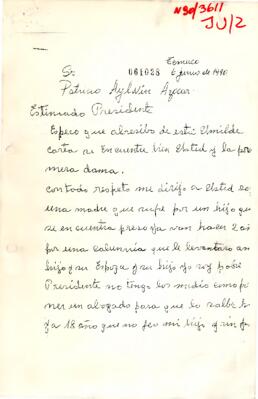 N90/3611
JU/2
Temuco
Sr. 061028 6 junio de 1990
Patricio Aylwin Azocar
Estimado Presidente
Espero que al resibo de esta Umilde
carta se encuentre bien Usted y la pri
mera dama.
con todo respeto me dirijo a Usted co
una madre que sufre por un hijo que
se encuentra preso ya van hacer 2 años
por una calunnia que le levantaron
su Espoza y su hijo yo soy pobre
Presidente no tengo los medio como po
ner un abogado para que lo
18 año que no veo mi hijo y sin